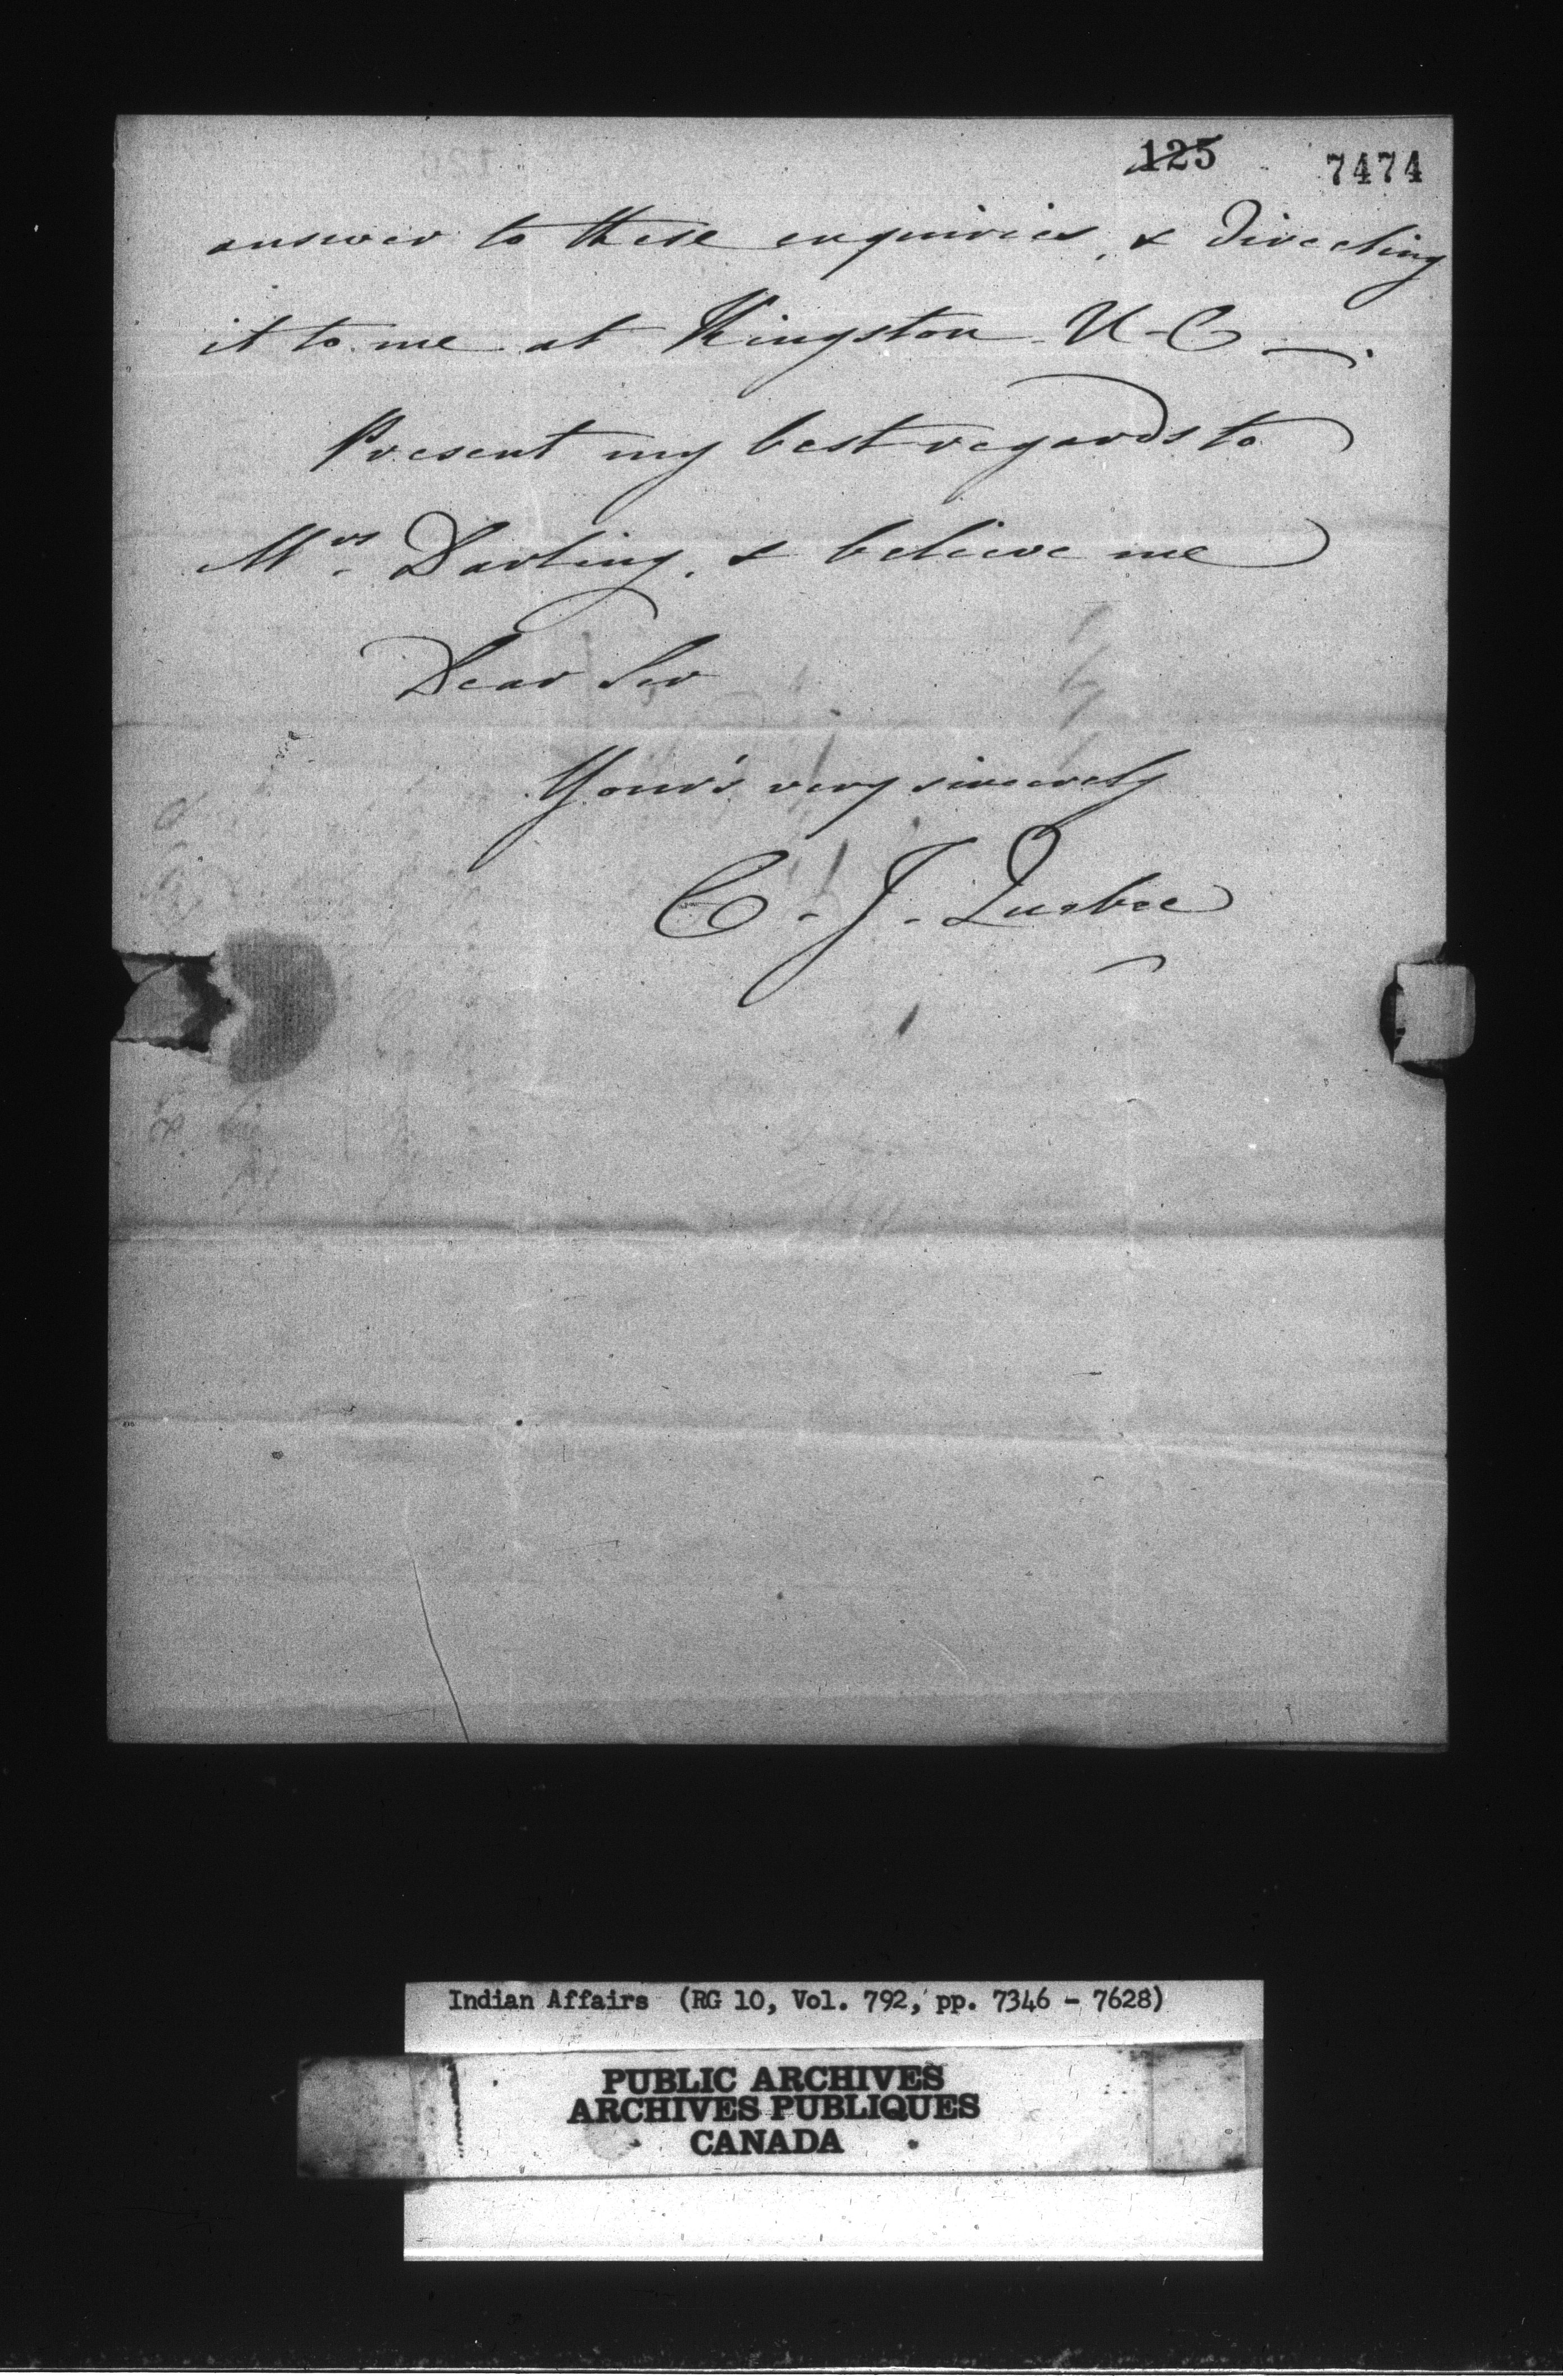 125 7474
answer to these enquiries, & directing
it to me at Kingston U-C—.
Present my best regards to
Mrs. Darling, & believe me
Dear Sir
Your's very sincerely
C. J. Quebec
Indian Affairs (RG 10, Vol. 792, pp. 7346 - 7628)
PUBLIC ARCHIVES
ARCHIVES PUBLIQUES
CANADA